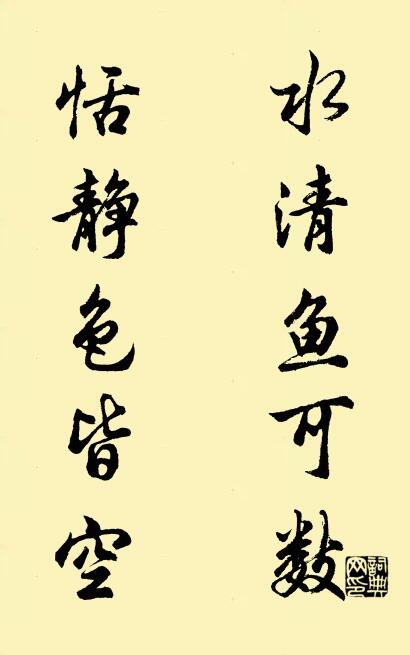 水清鱼可数
恬静色皆空
詞典网印